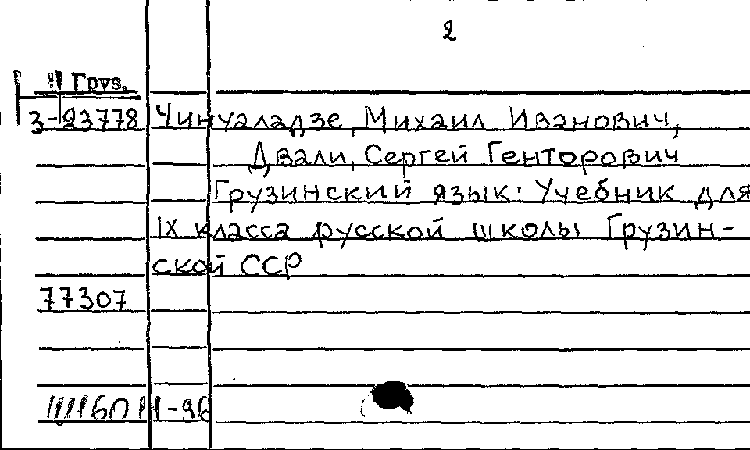 2
Груз.
3-23778 Чинчаладзе, Михаил Иванович,
Двали, Сергей Генторович
Грузинский язык: Учебник для
IX класса русской школы Грузин-
ской ССР
77307